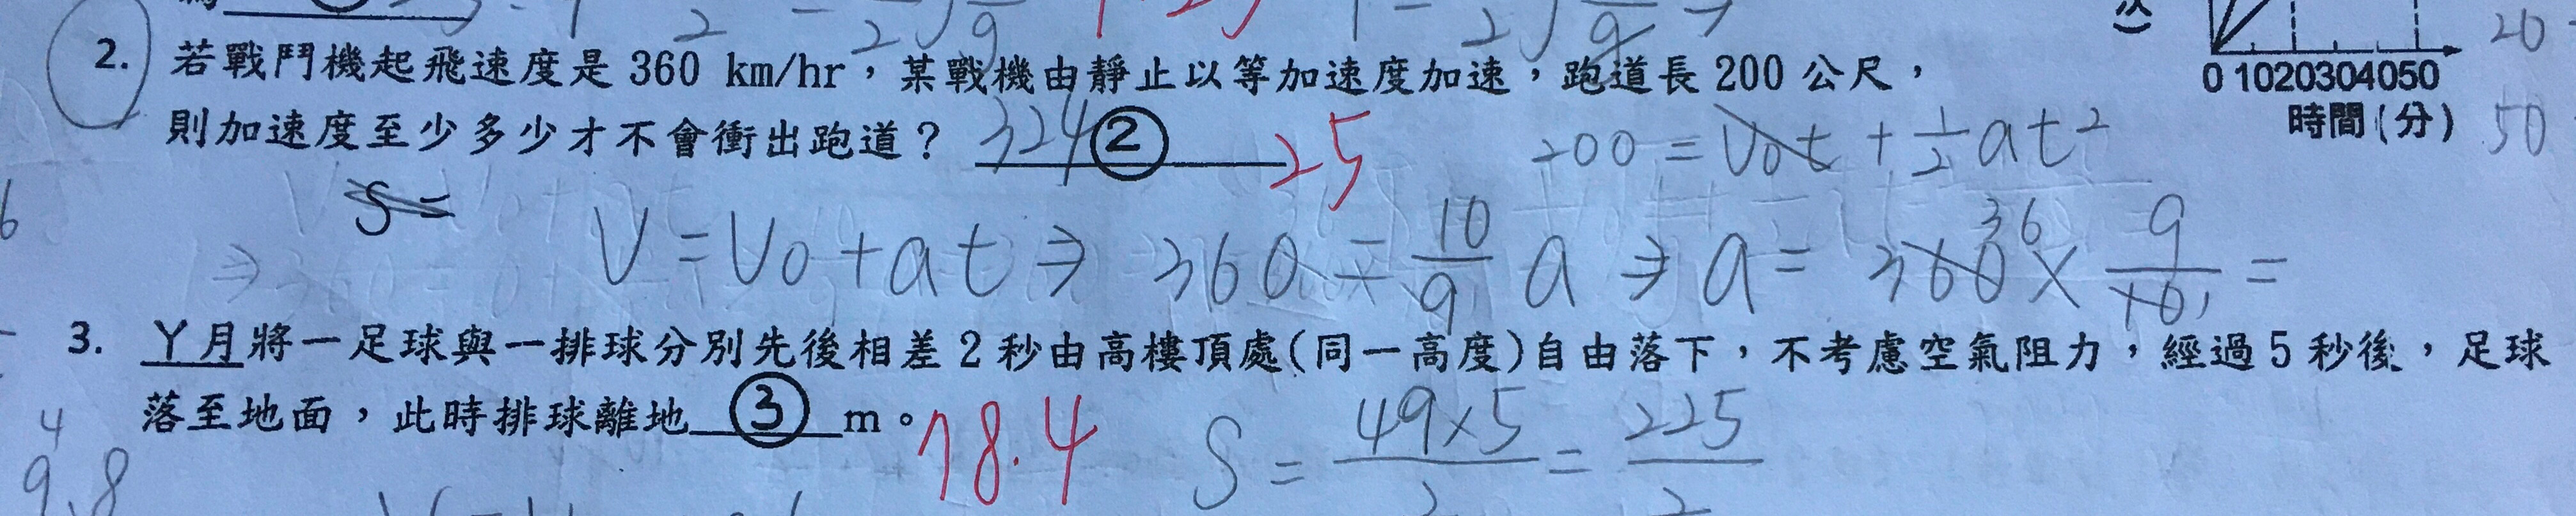 2. 若戰鬥機起飛速度是 360 km/hr，某戰機由靜止以等加速度加速，跑道長 200 公尺，
則加速度至少多少才不會衝出跑道？ 324 ② 25
200 = V₀t + 1/2 at²
S =
V = V₀ + at ⇒ 360 = 10/9 a ⇒ a = 360 36 × 9/10 =
3. 丫月將一足球與一排球分別先後相差 2 秒由高樓頂處(同一高度)自由落下，不考慮空氣阻力，經過 5 秒後，足球
落至地面，此時排球離地 ③ m。 78.4
S = 49×5/2 = 225/2
4
9.8
0 1020304050
時間(分)
20
50
6